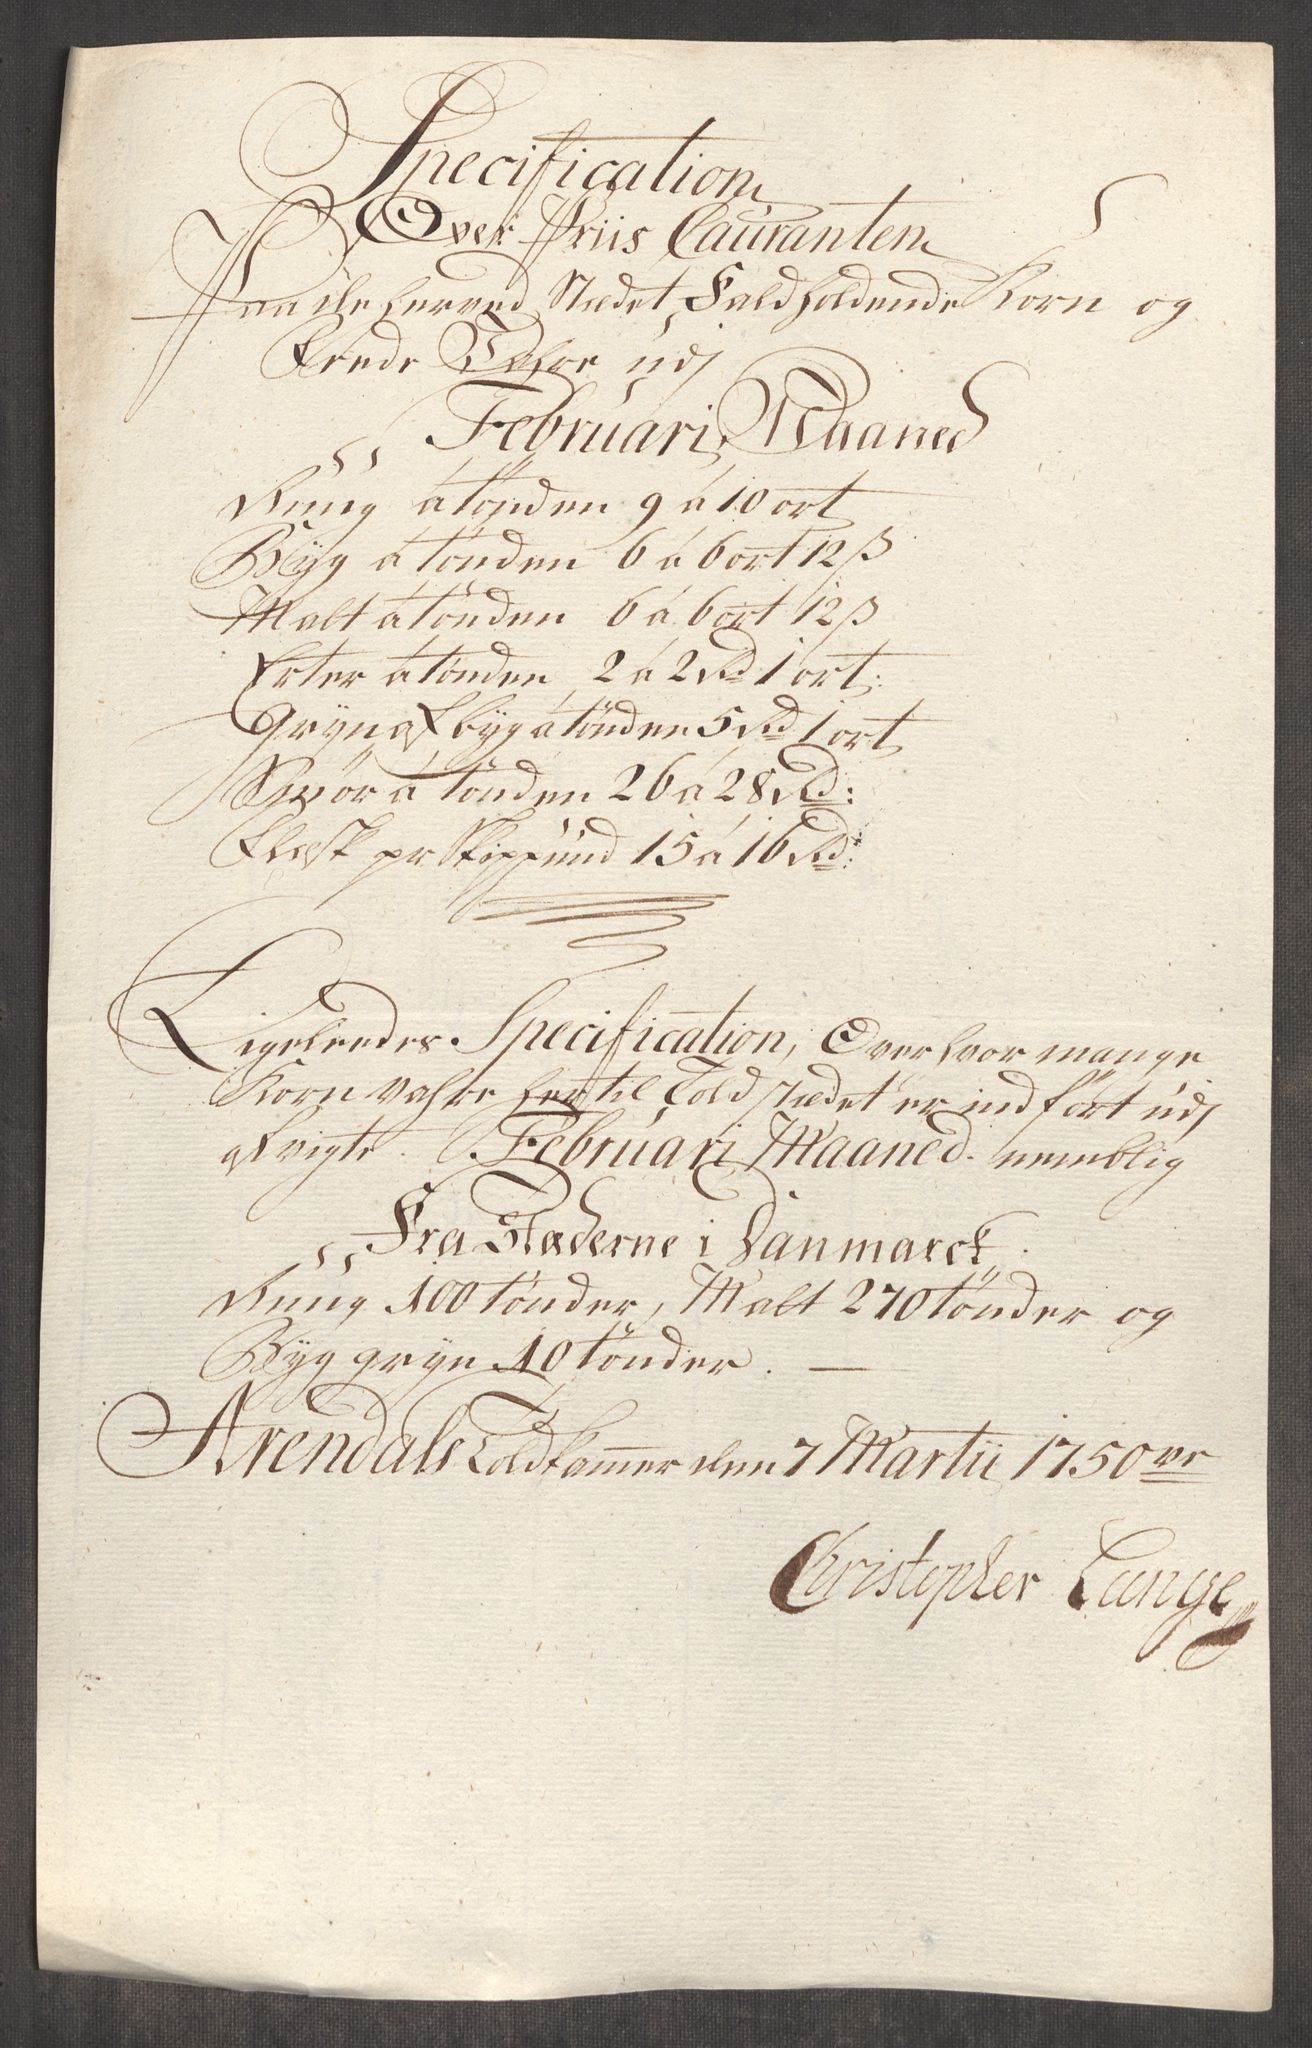 Specification
Over Priis Couranten
Paa de herved Stædet Faldholdende Korn og
Fæede Vahre udj
Februari Maaned
Rúug á tönden 9 á 10 ort
Byg á tönden 6 á 6 ort 12 ß
Malt á tönden 6 á 6 ort 12 ß
Erter á tönden 2 á 2 Rd 1 ort:
Gryn af byg á tönden 5 Rd 1 ort
Smör á tönden 26 á 28 Rd:
Flesk pr Skippund 15 á 16 Rd:
Ligeleedes Specification, Over hvor mange
Korn vahre her til Told stædet er indfört udj
afvigte Februari Maaned. nemblig
Fra Stæderne i Danmarck.
Rúug 100 tönder, Malt 270 tönder og
Byg gryn 10 tönder. —
Arendals Toldkammer den 7 Martii 1750 ve
Christopher Lange